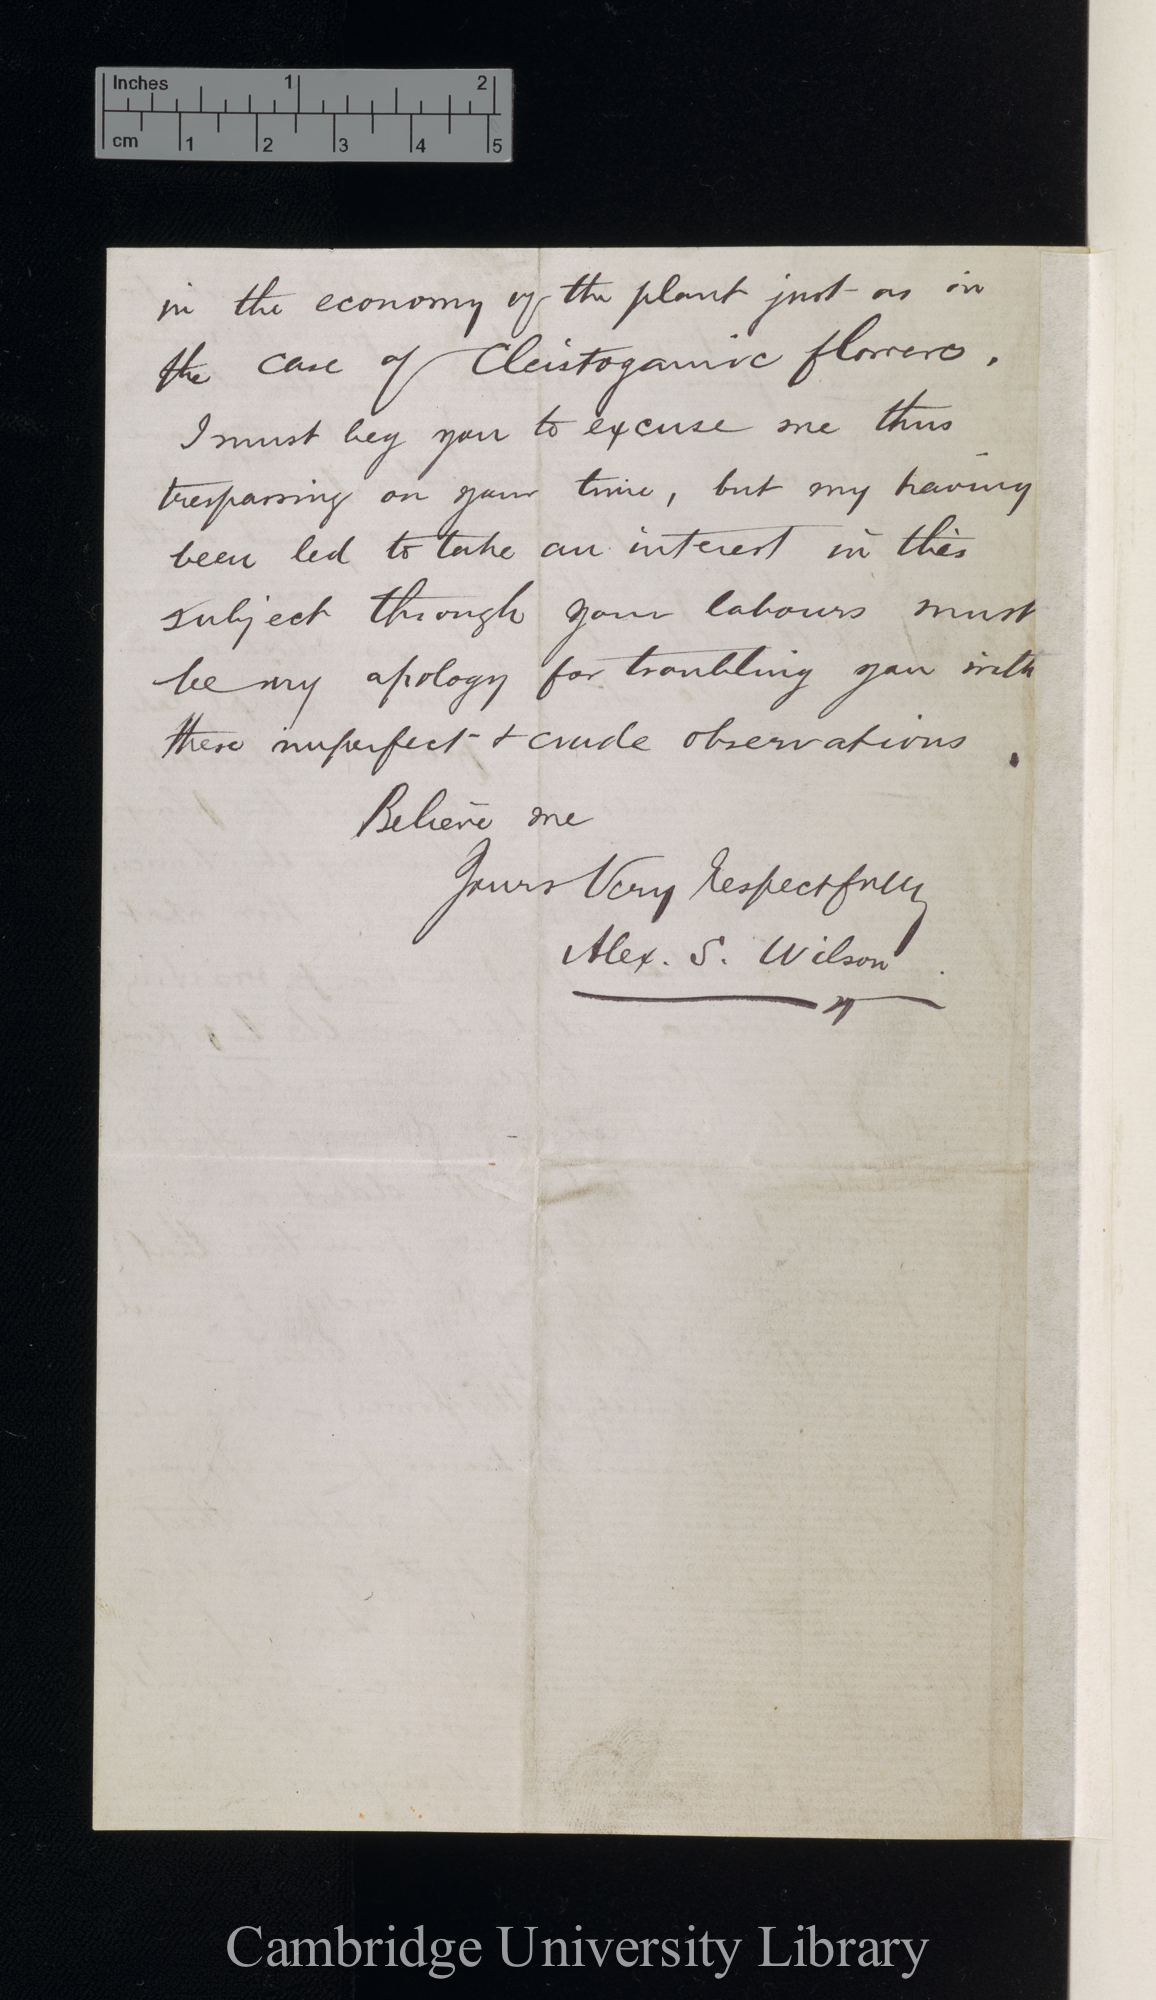 Inches 1 2
cm 1 2 3 4 5
in the economy of the plant just as in
the case of Cleistogamic flowers.
I must beg you to excuse me thus
trespassing on your time, but my having
been led to take an interest in this
subject through your labours must
be my apology for troubling you with
these imperfect & crude observations.
Believe me
Yours Very Respectfully
Alex. S. Wilson
Cambridge University Library